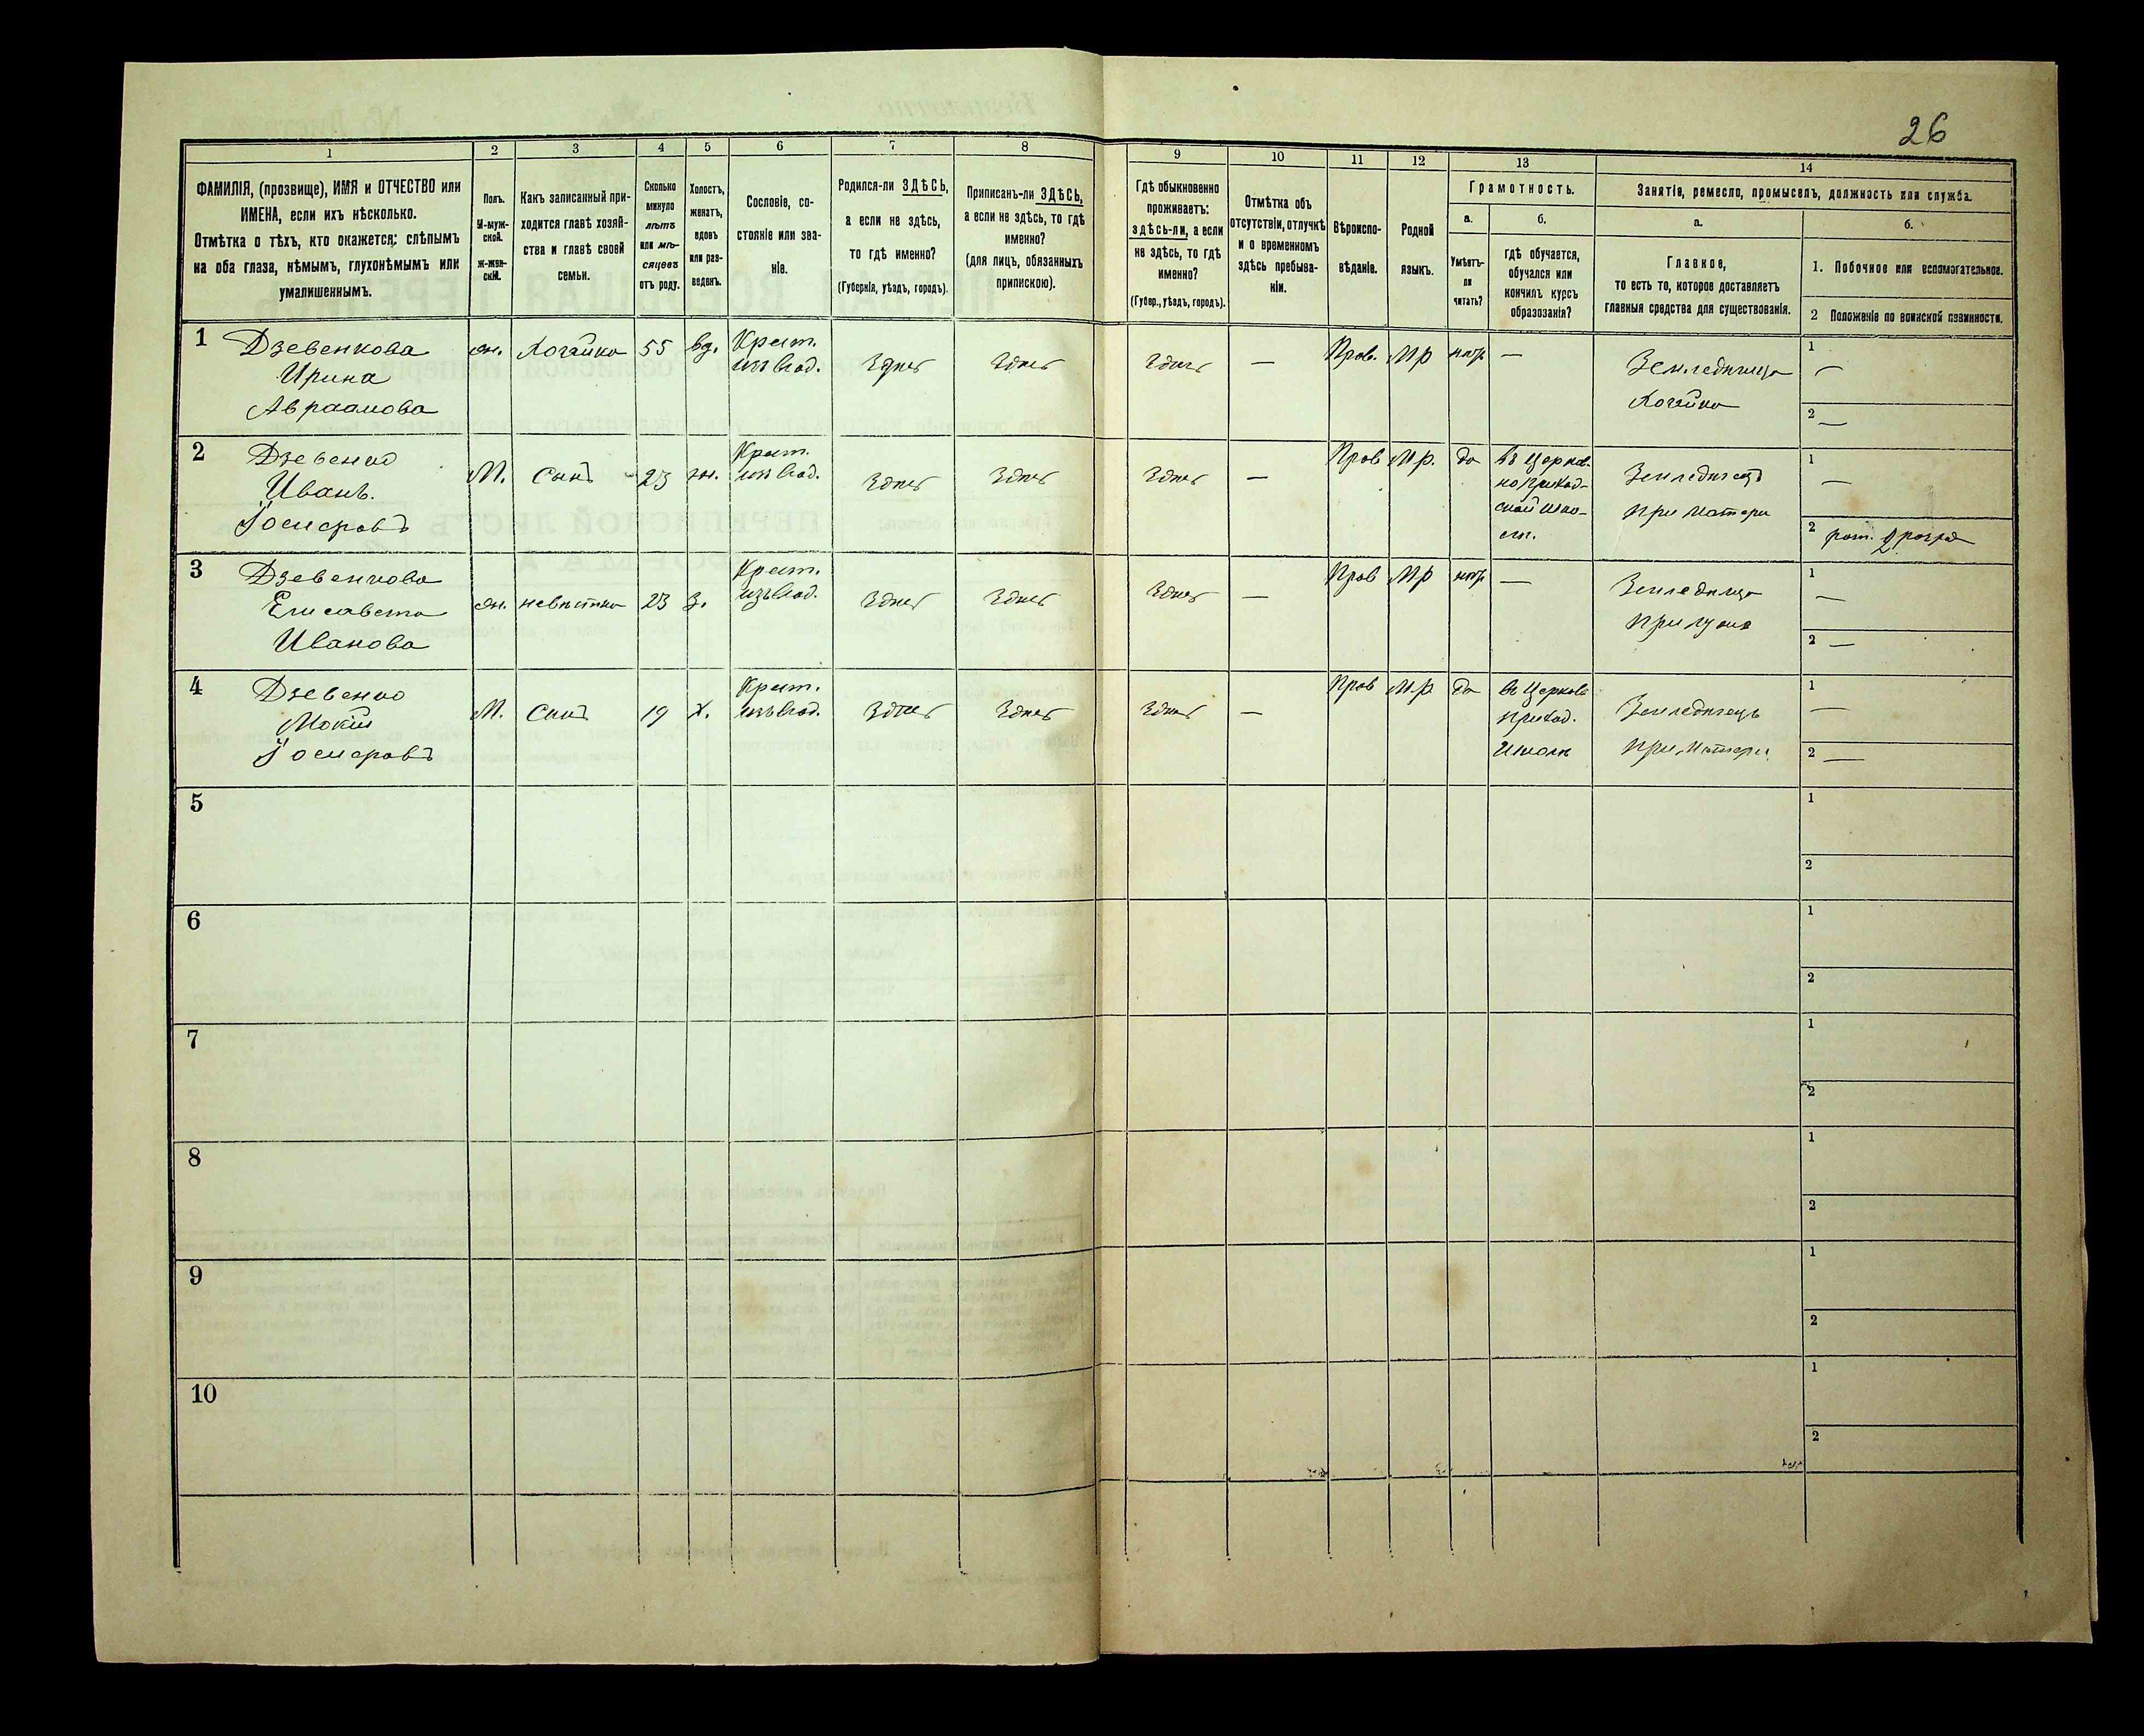 26
1 2 3 4 5 6 7 8 9 10 11 12 13 14
ФАМИЛІЯ, (прозвище), ИМЯ и ОТЧЕСТВО или
ИМЕНА, если ихъ нѣсколько.
Отмѣтка о тѣхъ, кто окажется: слѣпымъ
на оба глаза, нѣмымъ, глухонѣмымъ или
умалишеннымъ.
Полъ.
М-муж-
ской.
ж-жен-
скій.
Какъ записанный при-
ходится главѣ хозяй-
ства и главѣ своей
семьи.
Сколько
минуло
лѣтъ
или мѣ-
сяцевъ
отъ роду.
Холостъ,
женатъ,
вдовъ
или раз-
веденъ.
Сословіе, со-
стояніе или зва-
ніе.
Родился-ли ЗДѢСЬ,
а если не здѣсь,
то гдѣ именно?
(Губернія, уѣздъ, городъ).
Приписанъ-ли ЗДѢСЬ,
а если не здѣсь, то гдѣ
именно?
(для лицъ, обязанныхъ
припискою).
Гдѣ обыкновенно
проживаетъ:
здѣсь-ли, а если
не здѣсь, то гдѣ
именно?
(Губер., уѣздъ, городъ).
Отмѣтка объ
отсутствіи, отлучкѣ
и о временномъ
здѣсь пребыва-
ніи.
Вѣроиспо-
вѣданіе.
Родной
языкъ.
Грамотность.
а.
Умѣетъ-
ли
читать?
б.
Гдѣ обучается,
обучался или
кончилъ курсъ
образованія?
Занятіе, ремесло, промыселъ, должность или служба.
а.
Главное,
то есть то, которое доставляетъ
главныя средства для существованія.
б.
1. Побочное или вспомогательное.
2 Положеніе по воинской повинности.
1 Дзевенкова
Ирина
Авраамова
жн. Хозяйка 55 вд. Крест.
изъ влад. Здѣсь Здѣсь Здѣсь — Прав. М.р нѣтъ —
Земледѣлица
Хозяйка
1 —
2 —
2 Дзевенко
Иванъ.
М. Сынъ 23 жн. Крест.
изъ влад. Здѣсь Здѣсь Здѣсь — Прав М.р. да въ Церков-
но приход-
ской шко-
лѣ.
Земледѣлецъ
при матери
1 —
2
3 Дзевенкова
Елисавета
Иванова
жн. невѣстка 23 з. Крест.
изъ влад. Здѣсь Здѣсь Здѣсь — Прав М.р нѣтъ —
Земледѣлица
при мужѣ
1 —
2 —
4 Дзевенко
Мокій
М. Сынъ 19 х. Крест.
изъ влад. Здѣсь Здѣсь Здѣсь — Прав М.р да въ Церковн
приход.
школѣ
Земледѣлецъ
при матери
1 —
2 —
5 1
2
6 1
2
7 1
2
8 1
2
9 1
2
10 1
2